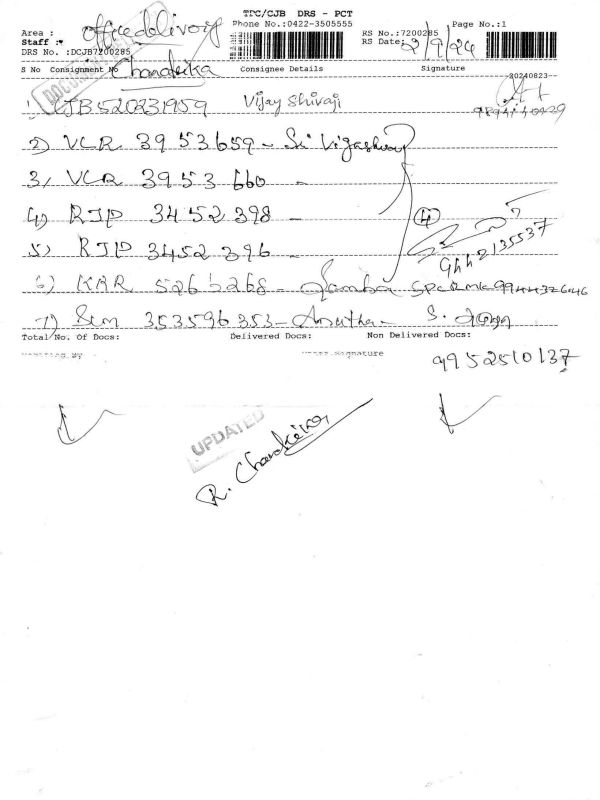 TPC/CJB DRS - PCT
Area : office delivery Phone No.:0422-3505555 Page No.:1
Staff : RS No.:7200285
DRS No. :DCJB7200285 RS Date: 2/9/24
S No Consignment No Chandrika Consignee Details Signature
20240823
1) CJB520231959 Vijay Shivaji
2) VCR 3953659 -
3) VCR 3953660 -
4) RJP 3452398 - 4
5) RJP 3452396 - 9442135537
6) KAR 5265268 - 9944376046
7) 353596353 - S.
Total No. Of Docs: Delivered Docs: Non Delivered Docs:
9952510137
UPDATED
R. Chandrika